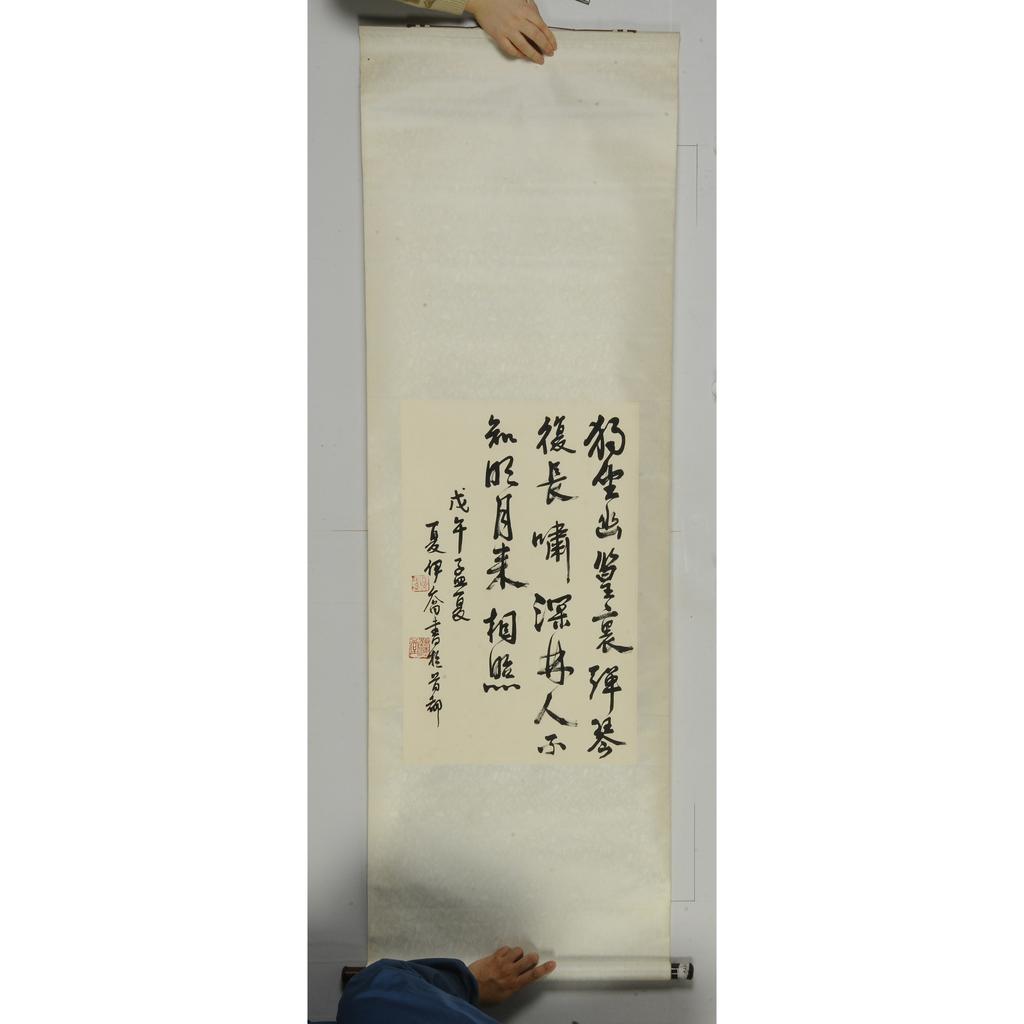 獨坐幽篁裏彈琴
復長嘯深林人不
知明月来相照
戊午孟夏
夏伊喬書於首都